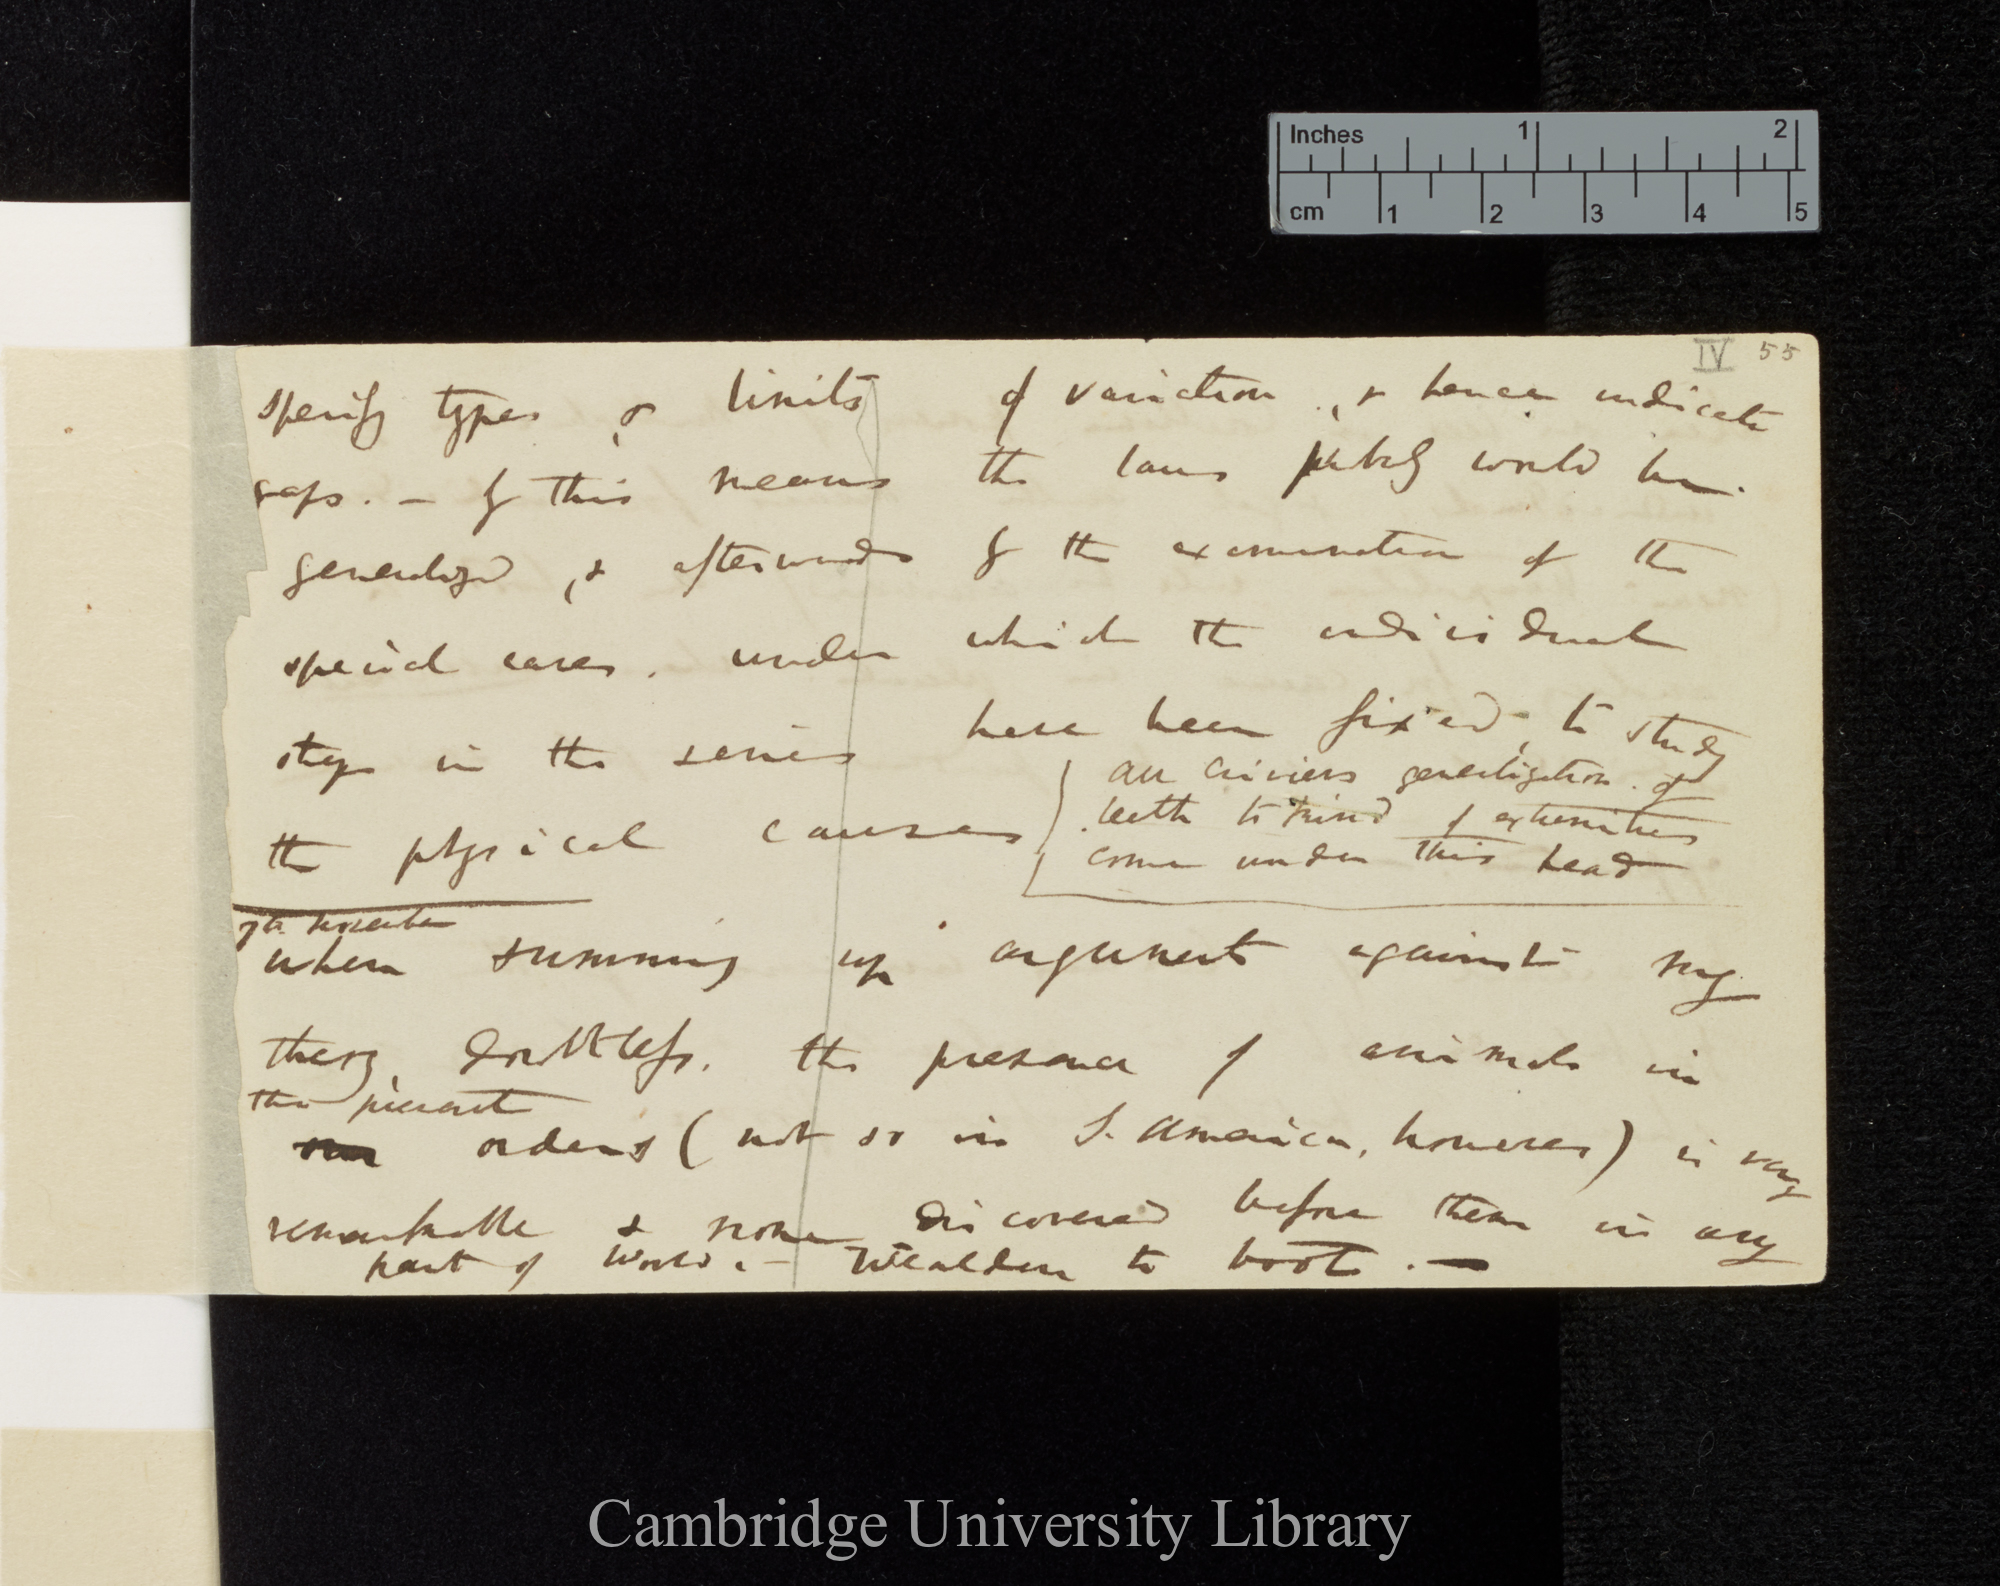 Inches 1 2
cm 1 2 3 4 5
IV 55
specify types & limits of variation, & hence indicate
gaps. — By this means the laws probably would be
generalized, & afterwards by the examination of the
special cases. under which the individual
steps in the series have been fixed, to study
the physical causes
All Cuviers generalization of
teeth to kind of extremities
come under this head
7th November
When summing up argument against my
theory, doubtless. the presence of animals in
the present
orders (not so in S. America, however) is very
remarkable & none discovered before them in any
part of World. — Wealden to boot. —
Cambridge University Library